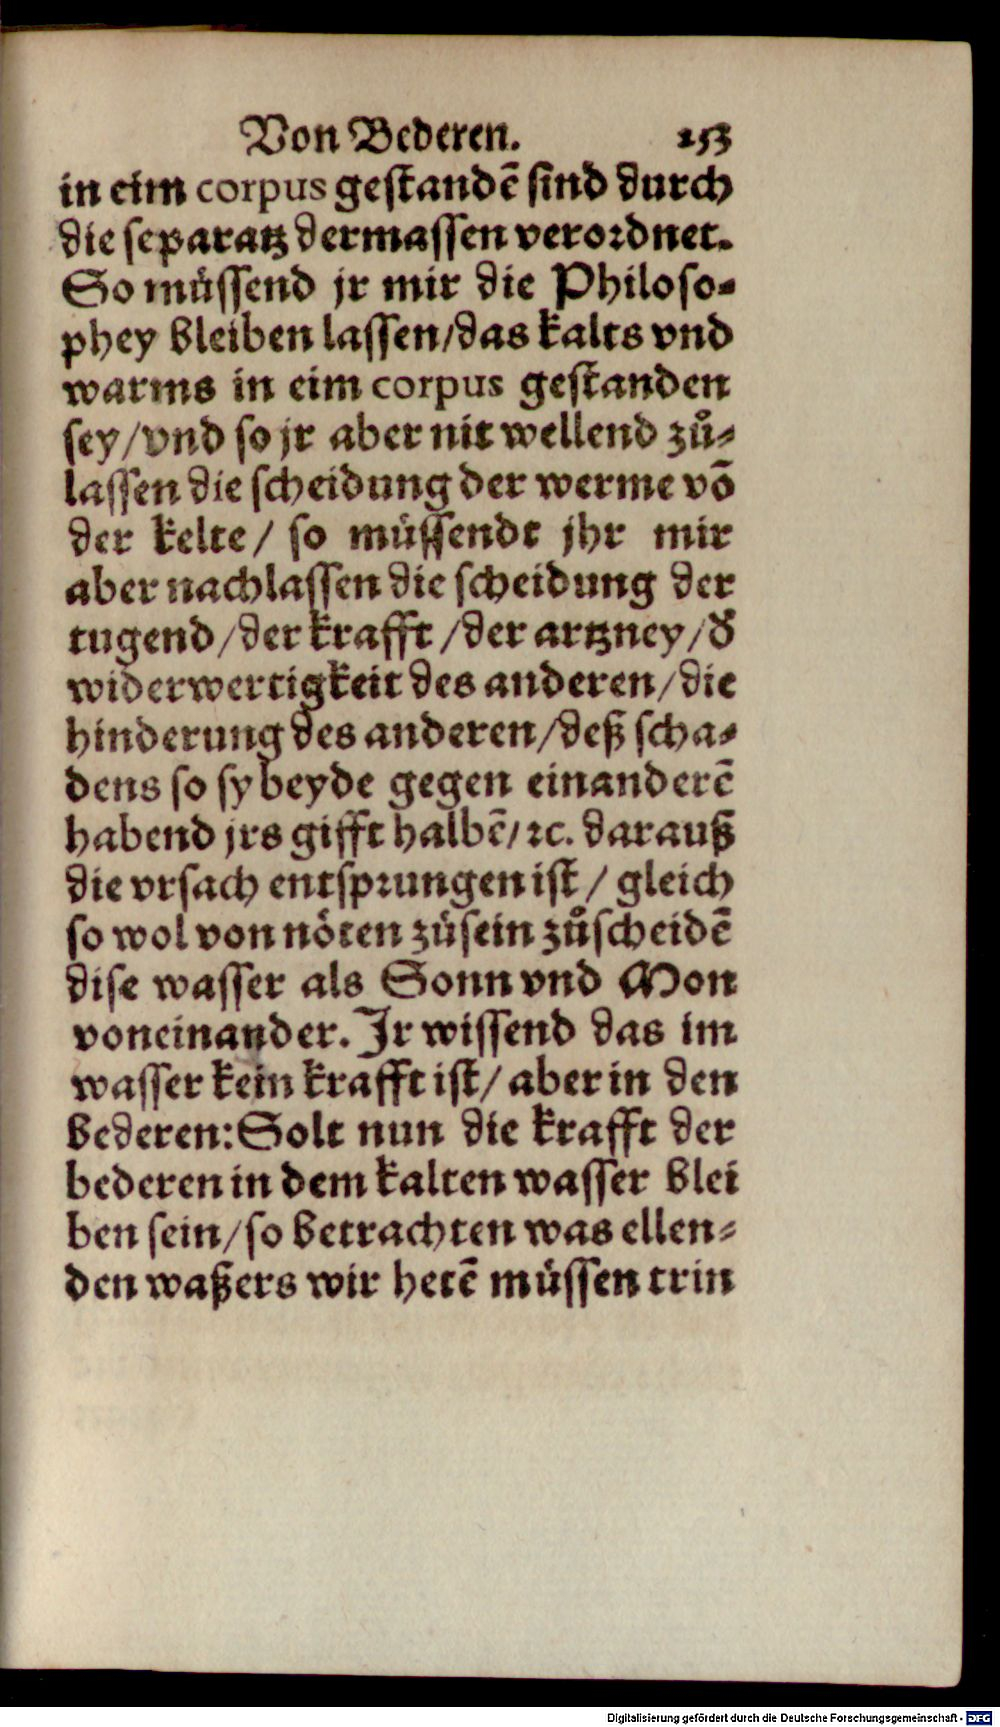 Von Bederen. 253
in eim corpus gestandē sind durch
die separatz dermassen verordnet.
So müssend jr mir die Philoso-
phey bleiben lassen/das kalts vnd
warms in eim corpus gestanden
sey/vnd so jr aber nit wellend zů-
lassen die scheidung der werme vō
der kelte/ so müssendt jhr mir
aber nachlassen die scheidung der
tugend/der krafft/der artzney/d̕
widerwertigkeit des anderen/die
hinderung des anderen/deß scha-
dens so sy beyde gegen einanderē
habend jrs gifft halbē/ꝛc. darauß
die vrsach entsprungen ist/ gleich
so wol von nöten zůsein zůscheidē
dise wasser als Sonn vnd Mon
voneinander. Jr wissend das im
wasser kein krafft ist/ aber in den
bederen: Solt nun die krafft der
bederen in dem kalten wasser blei
ben sein/so betrachten was ellen-
den waßers wir hetē müssen trin
Digitalisierung gefördert durch die Deutsche Forschungsgemeinschaft - DFG